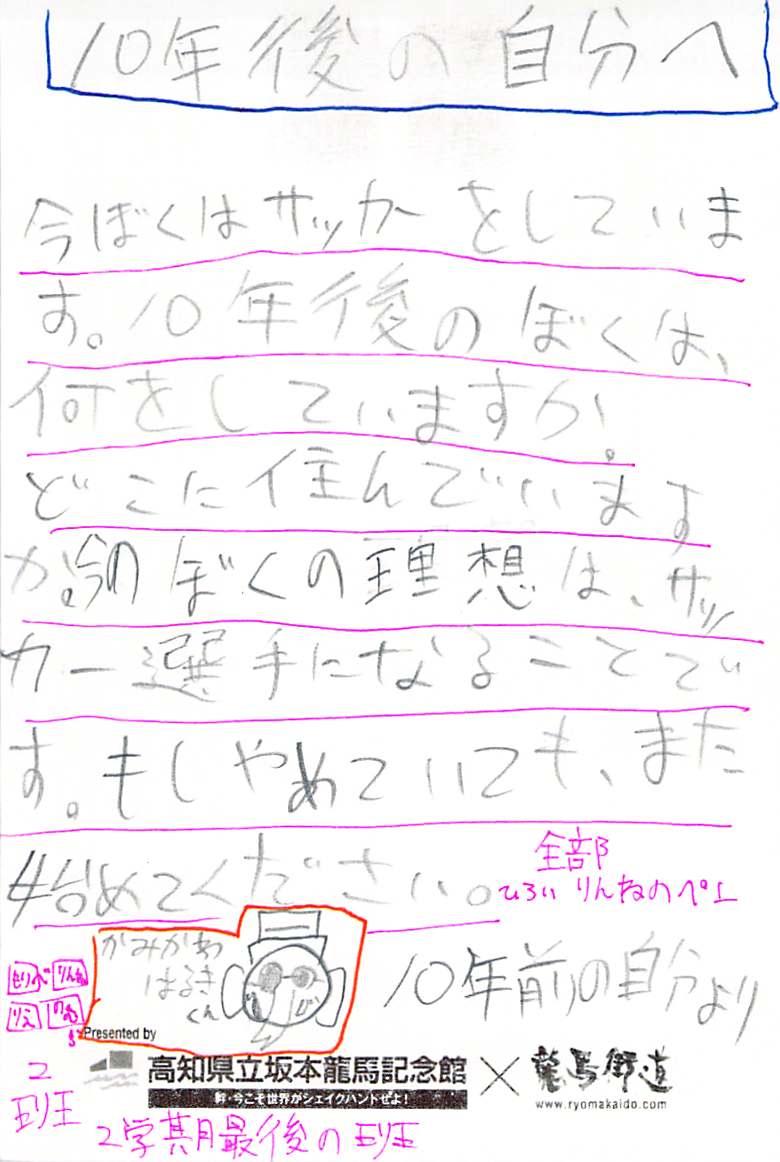 10年後の自分へ
今ぼくはサッカーをしていま
す。10年後のぼくは、
何をしていますか。
どこに住んでいます
か。今のぼくの理想は、サッ
カー選手になることで
す。もしやめていても、また
始めてください。
全部
ひろい りんねのペ
かみかわ
はるき
くん
10年前の自分より
もりべ りんね
りえ
Presented by
高知県立坂本龍馬記念館 × 龍馬街道
幹・今こそ世界がシェイクハンドぜよ!
www.ryomakaido.com
2
班
2学期最後の班